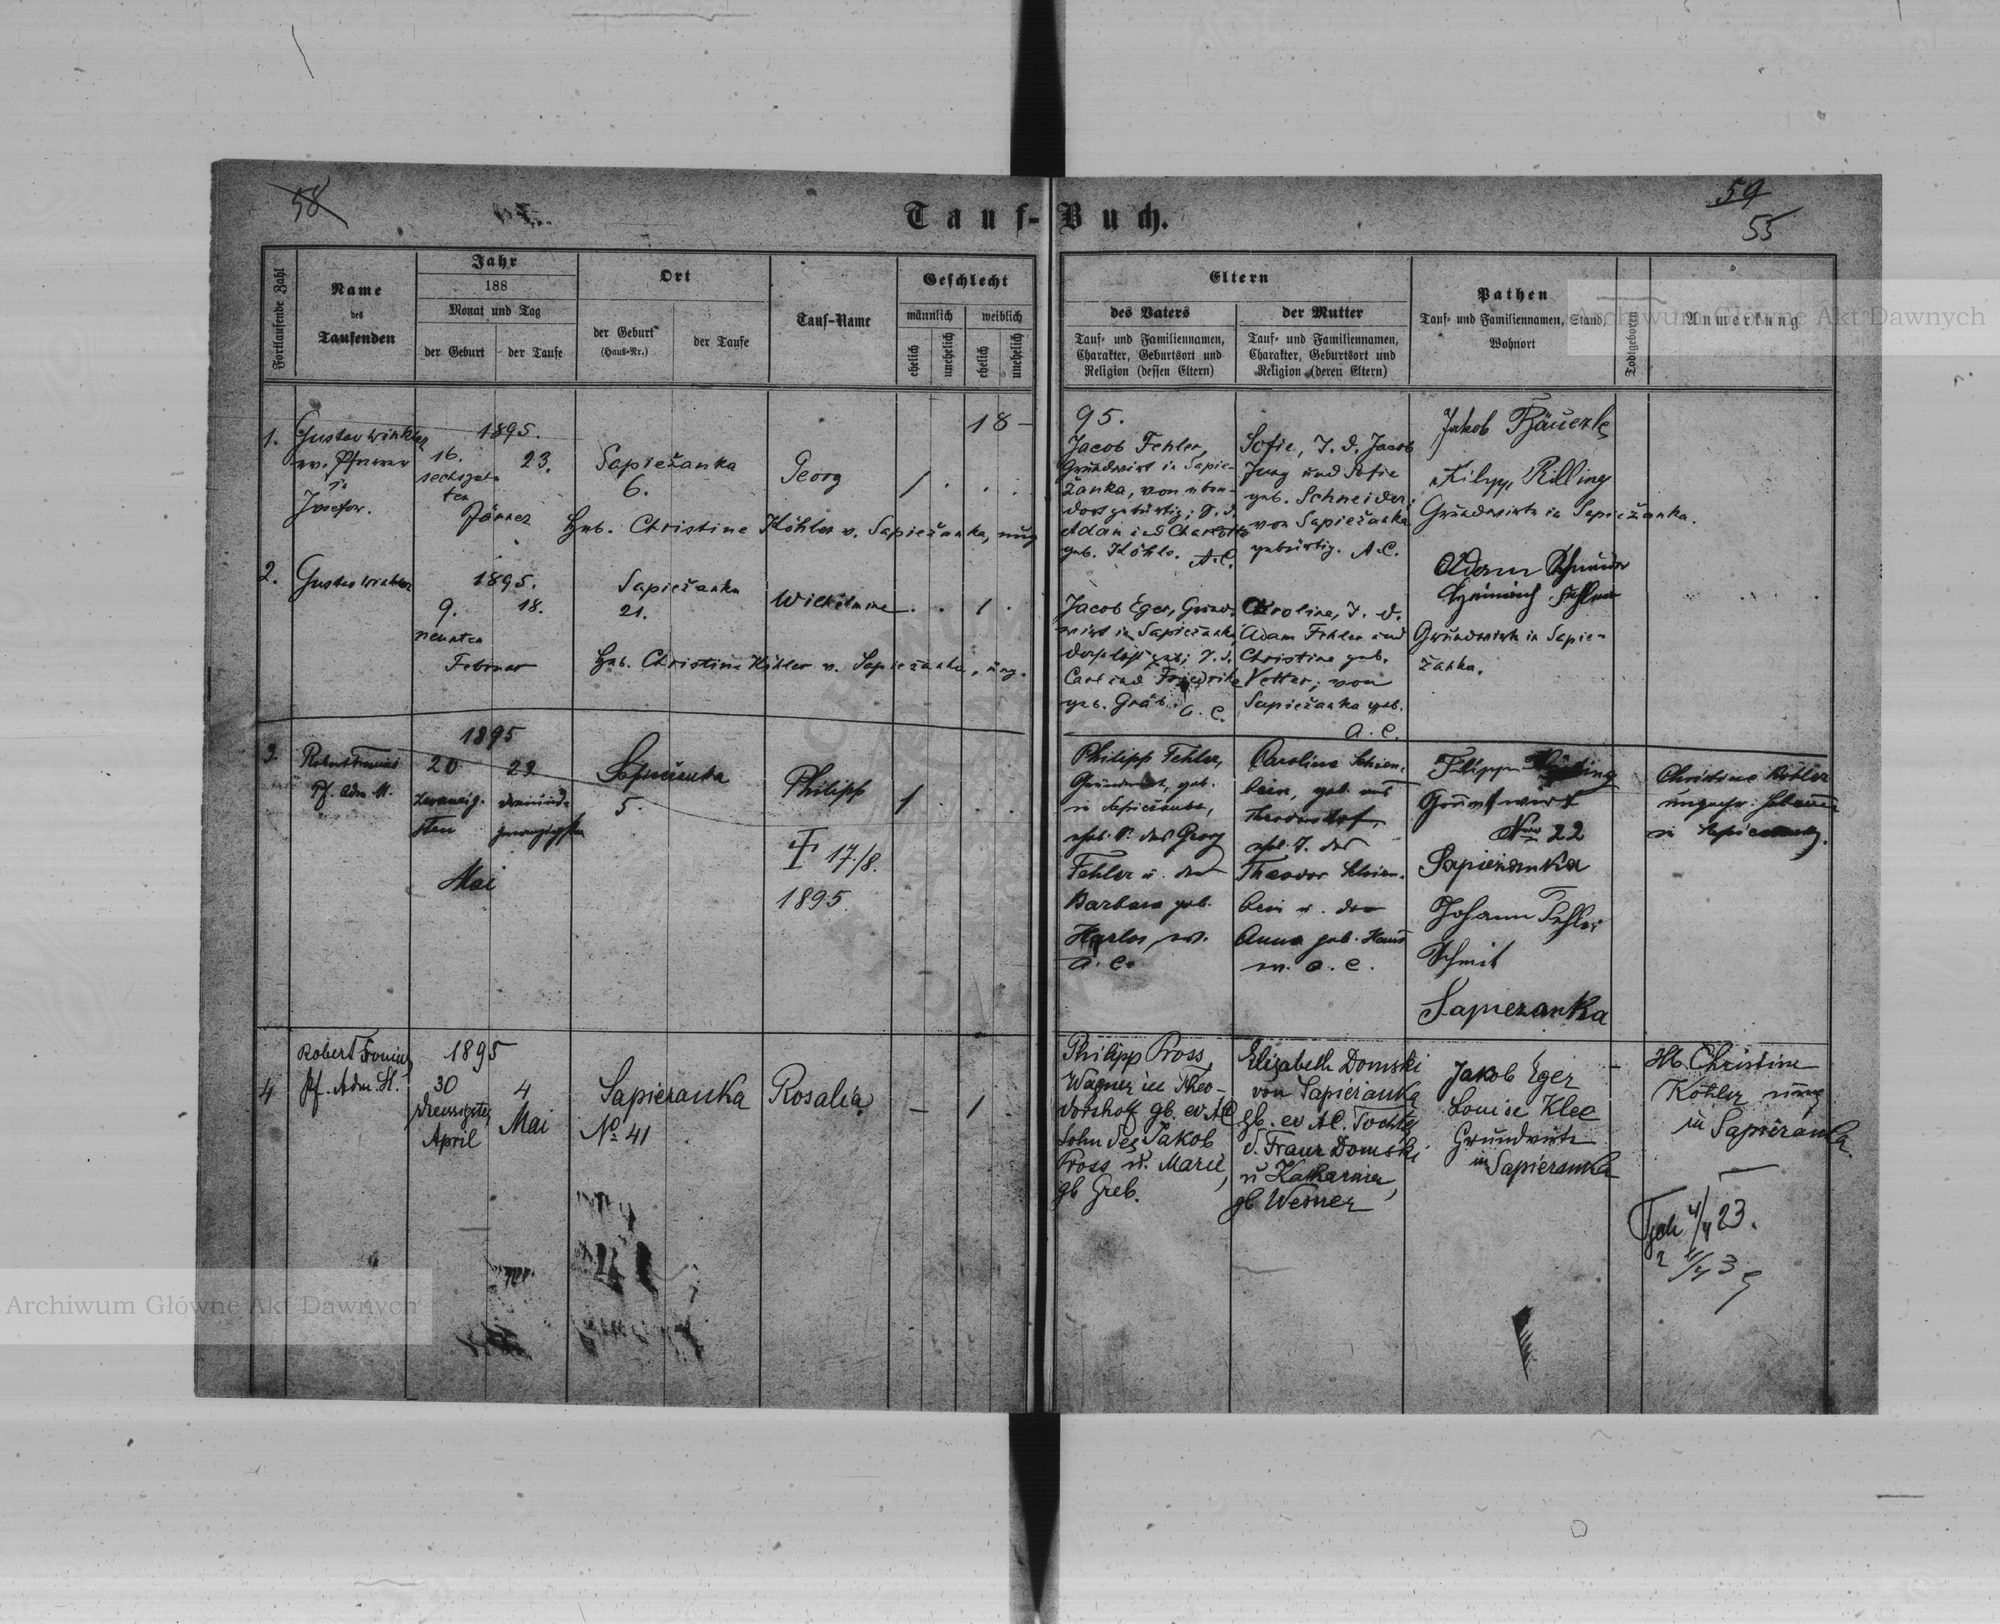 58
59
55
Tauf-Buch.
Fortlaufende Zahl
Name
des
Taufenden
Jahr
188
Monat und Tag
der Geburt
der Taufe
Ort
der Geburt
(Haus-Nr.)
der Taufe
Tauf-Name
Geschlecht
männlich
weiblich
ehelich
unehelich
ehelich
unehelich
Eltern
des Vaters
Tauf- und Familiennamen,
Charakter, Geburtsort und
Religion (dessen Eltern)
der Mutter
Tauf- und Familiennamen,
Charakter, Geburtsort und
Religion (deren Eltern)
Pathen
Tauf- und Familiennamen, Stand
Wohnort
Todtgeboren
Anmerkung
18
95.
1.
Gustav Winkler
ev. Pfarrer
in
Josefow.
1895.
16.
23.
sechzehn-
ten
Jänner
Sapiežanka
6.
Georg
/
Heb. Christine Köhler v. Sapiežanka, ung.
Jacob Fehler,
Grundwirt in Sapie-
žanka, von eben-
dort gebürtig; S. d.
Adam und Charlotte
geb. Köhle. A.C.
Sofie, T. d. Jacob
Jung und Sofie
geb. Schneider,
von Sapiežanka
gebürtig. A.C.
Jakob Bäuerle
Filipp Rilling
Grundwirte in Sapiežanka.
2.
Gustav Winkler
1895.
9.
18.
neunten
Februar
Sapiežanka
21.
Wilhelmine
1
Heb. Christine Köhler v. Sapiežanka, ung.
Jacob Eger, Grund-
wirt in Sapiežanka,
daselbst geb; S. d.
Carl und Friedrike
geb. Gräb. A. C.
Karoline, T. d.
Adam Fehler und
Christine geb.
Vetter; von
Sapiežanka geb.
A. C.
Adam Schneider
Heinrich Fehler
Grundwirte in Sapie-
žanka.
3.
Robert Fronius
Pf. Adm. St.
1895
20
23
zwanzig-
sten
dreiund-
zwanzigsten
Mai
Sapieżanka
5.
Philipp
† 17/8.
1895.
1
Philipp Fehler,
Grundwirt, geb.
in Sapieżanka,
ehel. S. des Georg
Fehler u. der
Barbara geb.
Harlos, ev.
A. C.
Caroline Schien-
bein, geb. aus
Theodorshof,
ehel. T. des
Theodor Schien-
bein u. der
Anna geb. Haus
ev. A. C.
Filipp Rilling
Grundwirt
Nro 22
Sapiezanka
Johann Fehler
Schmit
Sapiezanka
Christine Köhler
ungepr. Hebamme
in Sapiezanka.
4
Robert Fronius
Pf. Adm. St.
1895
30
4
dreissigster
April
Mai
Sapiezanka
No 41
Rosalia
–
1
Philipp Pross,
Wagner in Theo-
dorshoff gb. ev. AC
Sohn des Jakob
Pross u. Marie,
gb Greb.
Elizabeth Domski
von Sapiezanka
gb. ev. AC. Tochter
d. Franz Domski
u Katharina,
gb Wesner
Jakob Eger
Louise Klee
Grundwirte
in Sapiezanka
–
Hb. Christine
Köhler ung
in Sapiezanka.
4/4 23.
Archiwum Główne Akt Dawnych
Archiwum Główne Akt Dawnych